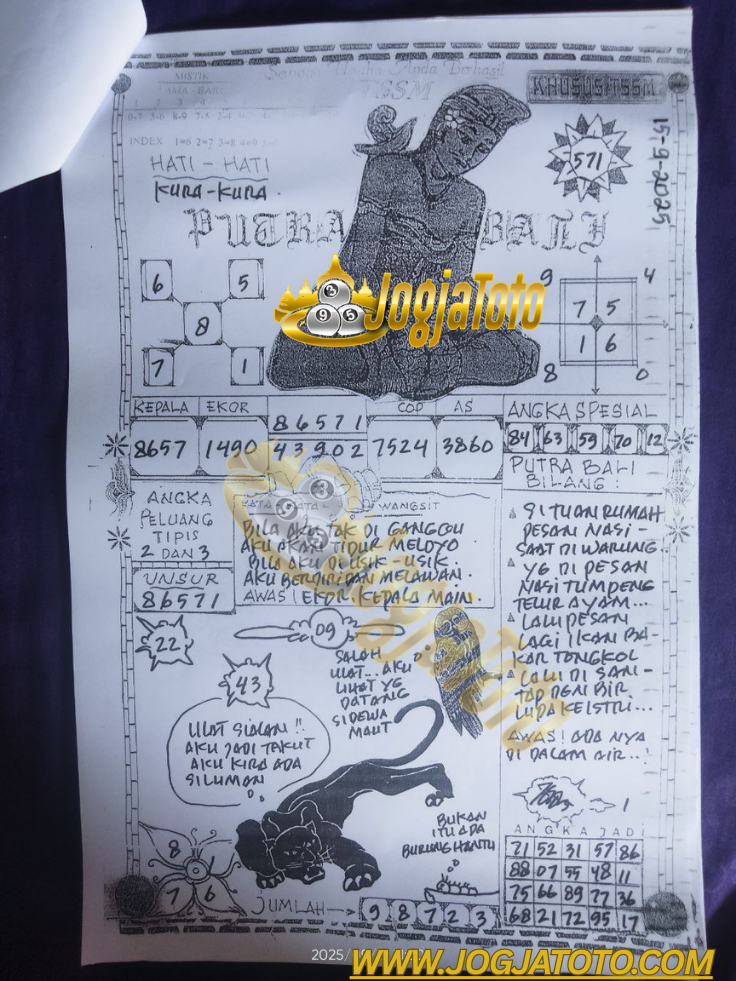 MISTIK
INDEX 1=6 2=7 3=8 4=9
KHUSUS TSSM
TSSM
15-9-2025
571
HATI - HATI
KURA-KURA.
PUTRA BALI
6 5
8
7 1
9 4
7 5
1 6
8 0
JogjaToto
KEPALA EKOR 86571 COP AS
8657 1490 43902 7524 3860
ANGKA SPESIAL
84 63 59 70 12
PUTRA BALI
BILANG:
ANGKA
PELUANG
TIPIS
2 DAN 3
UNSUR
86571
WANGSIT
BILA AKU TAK DI GANGGU
AKU AKAN TIDUR MELOYO
BILA AKU DI USIK-USIK.
AKU BERDIRI DAN MELAWAN.
AWAS! EKOR. KEPALA MAIN.
SI TUAN RUMAH
PESAN NASI -
SAAT DI WARUNG.
YG DI PESAN
NASI TUMPENG
TELUR AYAM...
LALU PESAN
LAGI IKAN BA-
KAR TONGKOL
LALU DI SAN-
TAP DGN BIR.
LUPA KE ISTRI...
AWAS! ADA NYA
DI DALAM AIR..!
22
09
43
SALAH
LIHAT... AKU
LIHAT YG
DATANG
SI DEWA
MAUT
ULAT SIALAN!!
AKU JADI TAKUT
AKU KIRA ADA
SILUMAN
BUKAN
ITU ADA
BURUNG HANTU
8 1
7 6
JUMLAH → 9 8 7 2 3
1
ANGKA JADI
71 52 31 57 86
88 07 55 48 11
75 66 89 77 36
68 21 72 95 17
2025/
WWW.JOGJATOTO.COM